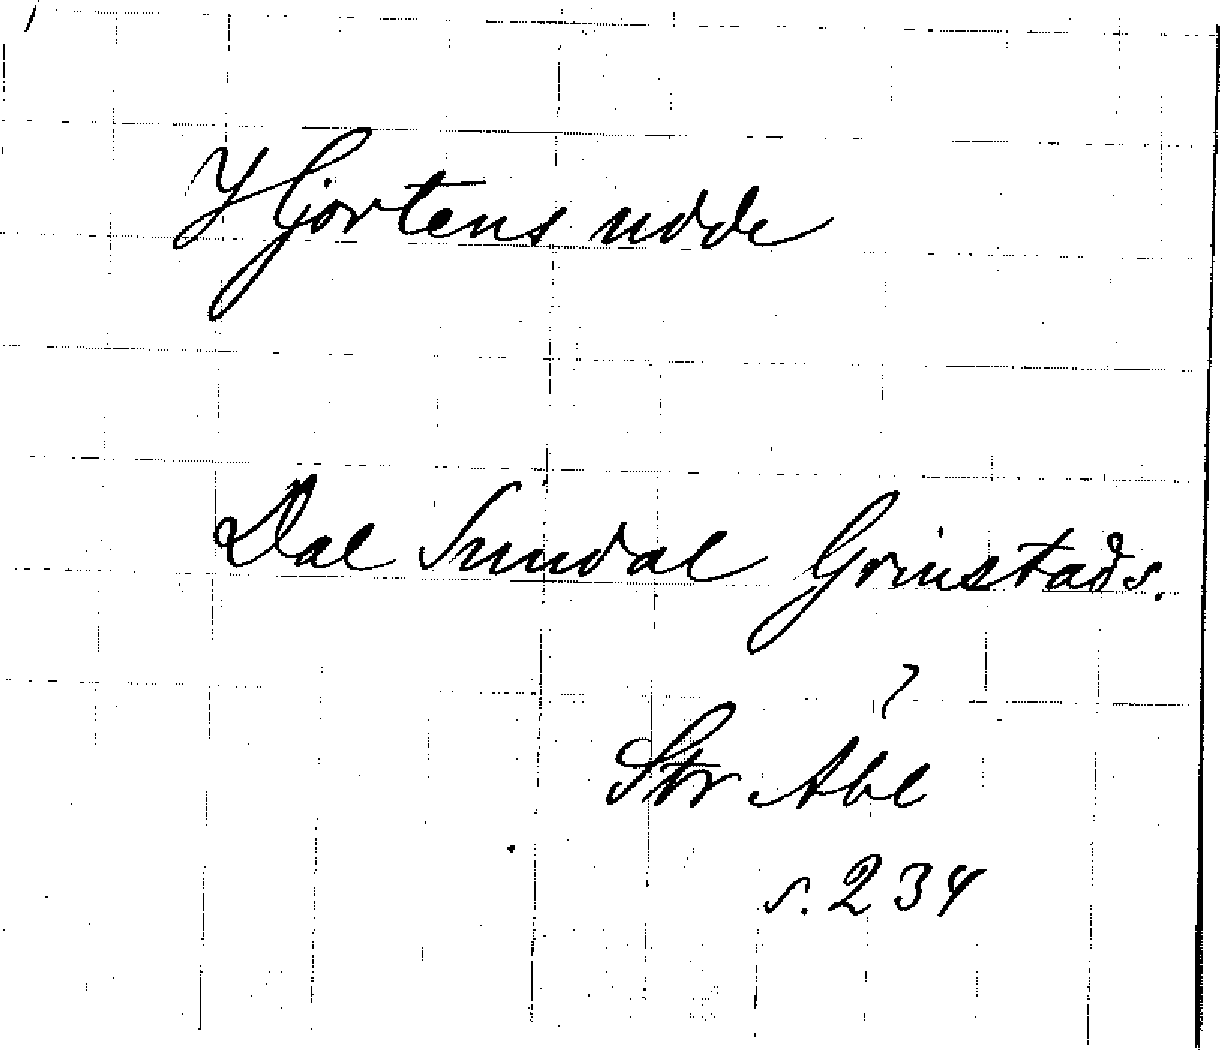 Hjortens udde
Dal Sundal Grinstads.
?
Str Abl
s. 234